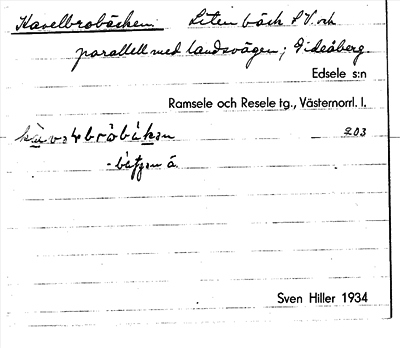 Kavelbrobäcken. Liten bäck S V. och
parallell med landsvägen; Gideåberg.
Edsele s:n
Ramsele och Resele tg., Västernorrl. l.
203
Sven Hiller 1934